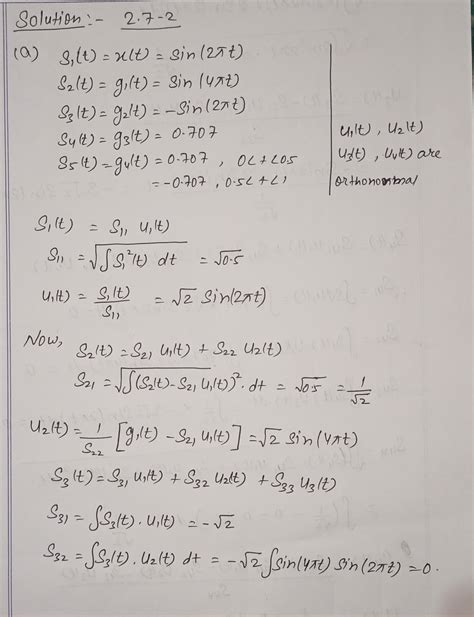 Solution:- 2.7-2
(a) S₁(t) = x(t) = sin(2πt)
S₂(t) = g₁(t) = sin(4πt)
S₃(t) = g₂(t) = -sin(2πt)
S₄(t) = g₃(t) = 0.707
S₅(t) = g₄(t) = 0.707, 0<t<0.5
= -0.707, 0.5<t<1
u₁(t), u₂(t)
u₃(t), u₄(t) are
orthonormal
S₁(t) = S₁₁ u₁(t)
S₁₁ = √∫S₁²(t) dt = √0.5
u₁(t) = S₁(t)/S₁₁ = √2 sin(2πt)
Now, S₂(t) = S₂₁ u₁(t) + S₂₂ u₂(t)
S₂₁ = √∫(S₂(t) - S₂₁ u₁(t))² · dt = √0.5 = 1/√2
u₂(t) = 1/S₂₂ [g₁(t) - S₂₁ u₁(t)] = √2 sin(4πt)
S₃(t) = S₃₁ u₁(t) + S₃₂ u₂(t) + S₃₃ u₃(t)
S₃₁ = ∫S₃(t) · u₁(t) = -√2
S₃₂ = ∫S₃(t) · u₂(t) dt = -√2 ∫sin(4πt) sin(2πt) = 0.